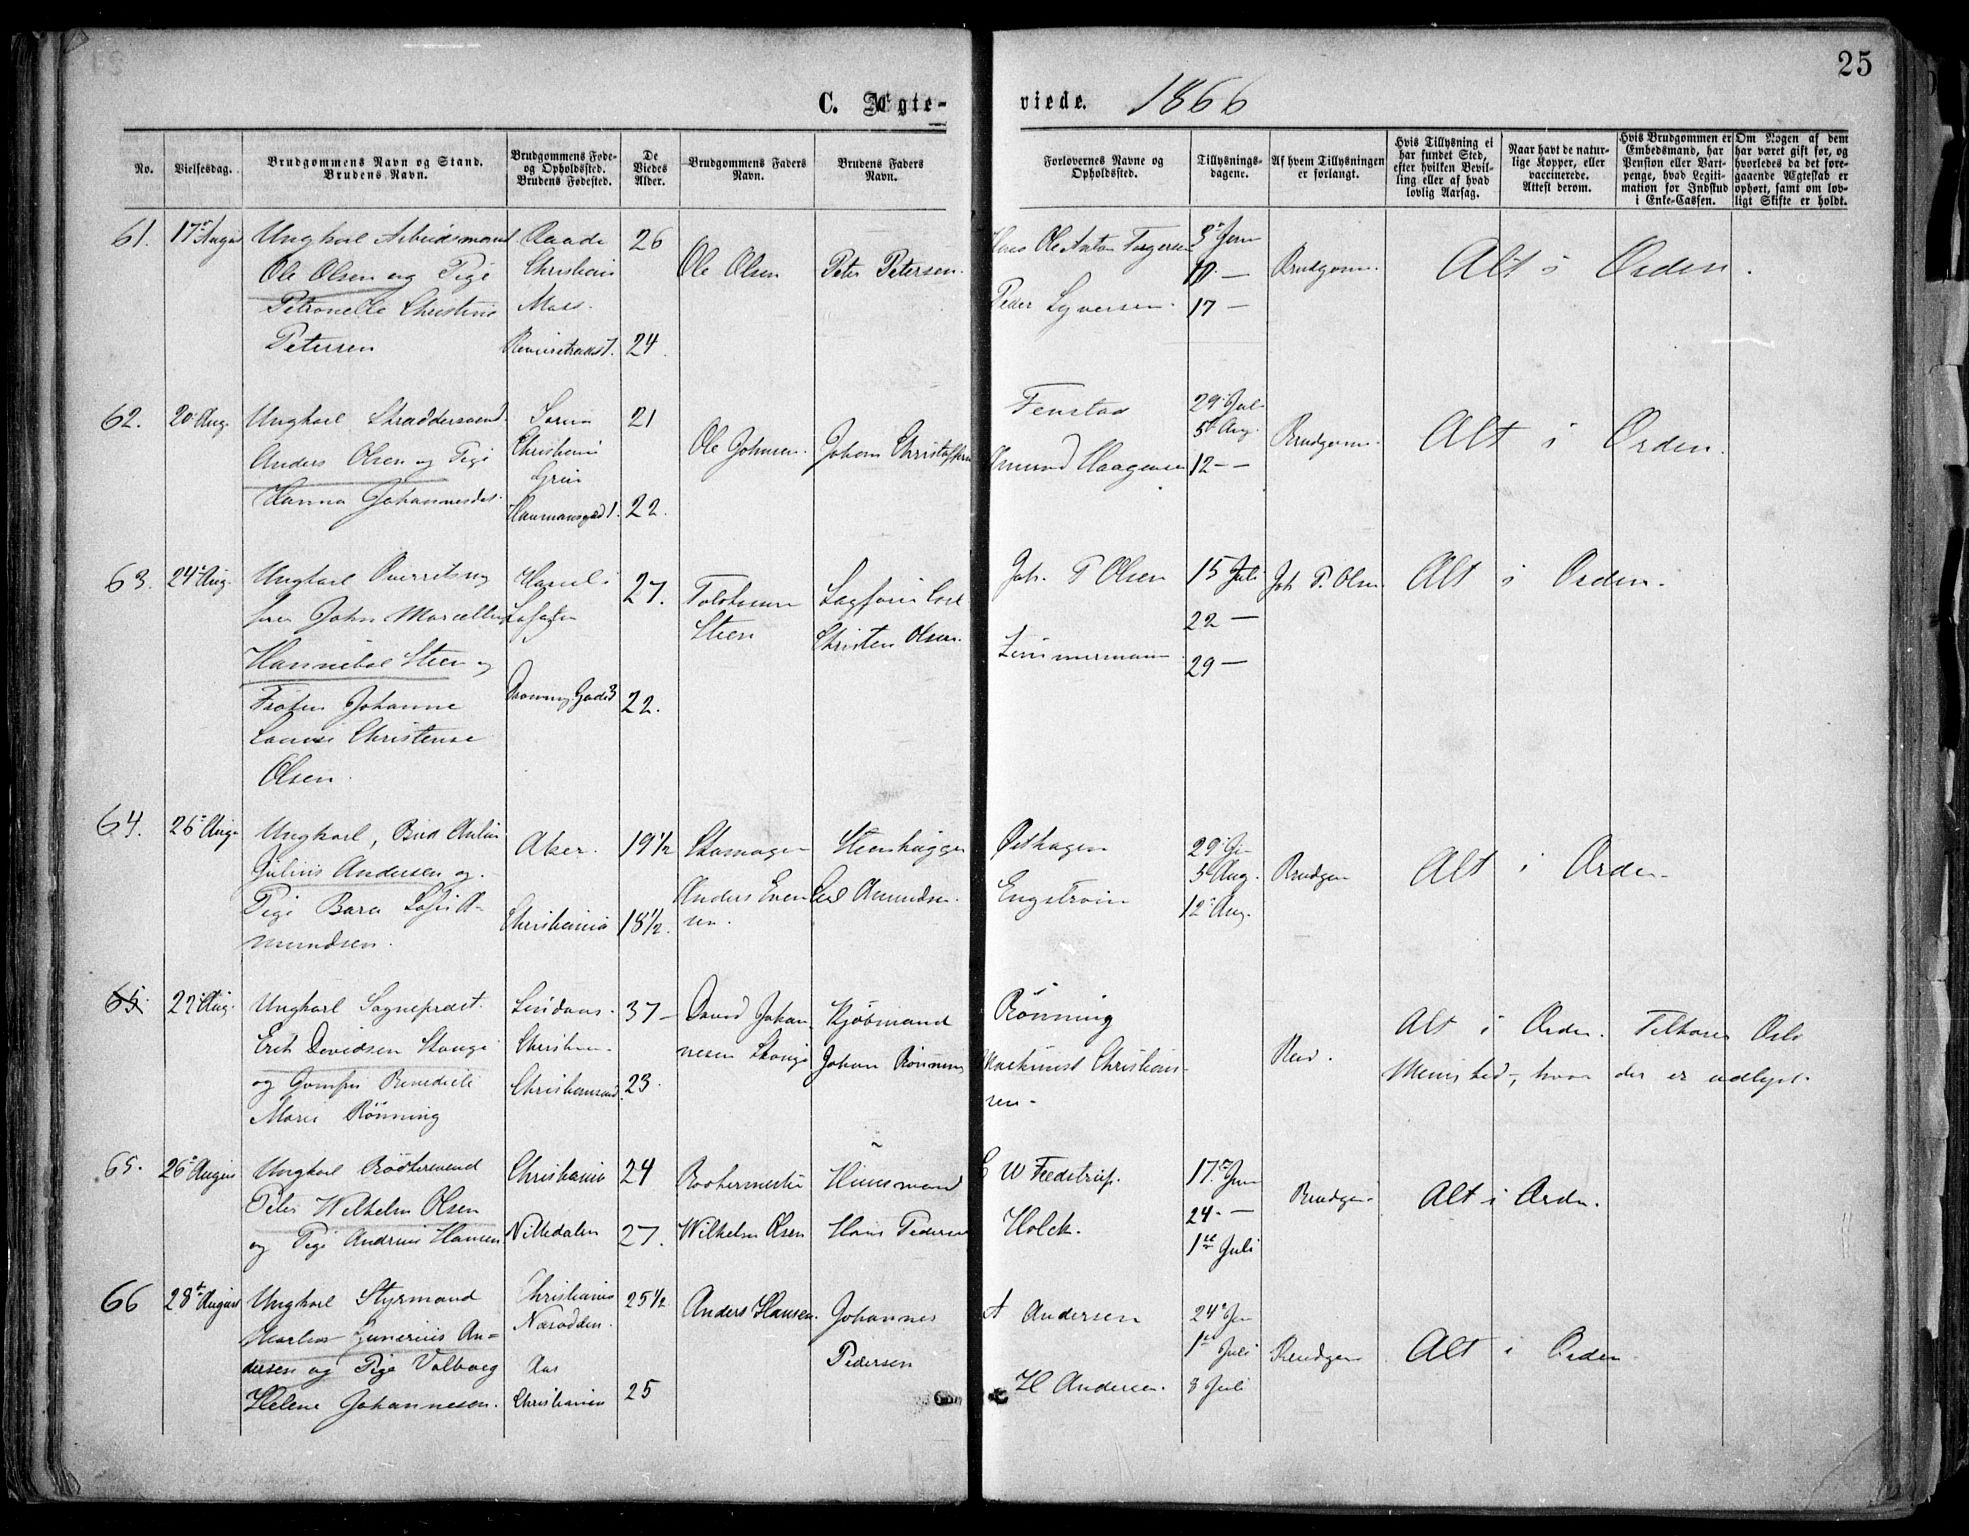 25
C. Ægte-
viede. 1866
No.
Vielsesdag.
Brudgommens Navn og Stand.
Brudens Navn.
Brudgommens Føde-
og Opholdssted.
Brudens Fødested.
De
Viedes
Alder.
Brudgommens Faders
Navn.
Brudens Faders
Navn.
Forlovernes Navne og
Opholdssted.
Tillysnings-
dagene.
Af hvem Tillysningen
er forlangt.
Hvis Tillysning ei
har fundet Sted,
efter hvilken Bevil-
ling eller af hvad
lovlig Aarsag.
Naar havt de natur-
lige Kopper, eller
vaccinerede.
Attest derom.
Hvis Brudgommen er
Embedsmand, har
Pension eller Vart-
penge, hvad Legiti-
mation for Indskud
i Enke-Cassen.
Om Nogen af dem
har været gift før, og
hvorledes da det fore-
gaaende Ægteskab er
ophørt, samt om lov-
ligt Skifte er holdt.
61. 17 August
Ungkarl Arbeidsmand
Ole Olsen og Pige
Petronelle Christine
Petersen
Raade
Christiania
Moss.
26
24
Ole Olsen
Peter Petersen.
Hans Ole Anton Torgersen
Peder Syversen.
3 Juni
10 —
17 —
Brudgom.
Alt i Orden.
62. 20 Aug.
Ungkarl Skræddersvend
Anders Olsen og Pige
Hanna Johannesdat.
Christiania
21
22.
Ole Johnsen.
Johan Christoffersen
Fenstad
Amund Haagensen
29 Juli
5 Aug.
12 —
Brudgom.
Alt i Orden.
63. 24 Aug.
Ungkarl Overretssag
fører John Marcellius
Hannibal Steen og
Frøken Johanne
Louise Christense
Olsen.
Dronning Gade 3
27.
22.
Steen
Sagfører Carl
Christen Olsen.
Joh. P Olsen
Zimmermann
15 Juli
22 —
29 —
Joh P. Olsen
Alt i Orden.
64. 26 Aug.
Ungkarl, Anton
Julius Andersen og
Pige Sofie A-
mundsen.
Aker.
Christiania
19 1/2
18 1/2.
Skomager
Anders Even
sen.
Steenhugger
Carl Amundsen.
Østhagen
Engstrøm
29 Ju
5 Aug.
12 Aug.
Brudgom
Alt i Orden.
65. 22 Aug.
Ungkarl Sognepræst
Erik Davidsen Stange
og Jomfru Benedicte
Marie Rönning
Christian-
Christiansand.
37 —
23.
David Johan
nesen Stange
Kjøbmand
Johan Rönning
Rönning
Christian-
sen -
Alt i Orden. Tilhører Oslo
Menighed, hvor der er udlyst.
65. 26 August
Ungkarl Bödkersvend
Peter Wilhelm Olsen
og Pige Andrine Hansen
Christiania
Nittedalen
24
27.
Bødkermester
Wilhelm Olsen
Huusmand
Hans Pedersen
E W Feedstrup.
Holck.
17 Juni
24 —
1ste Juli
Brudgom
Alt i Orden.
66 28 August
Ungkarl Styrmand
Gunerius An-
dersen og Pige Valborg
Helene Johannesen.
Christiania
Næsodden.
Aas
Christiania
25 1/2
25
Anders Hansen.
Johannes
Pedersen
A Andersen
H Andersen.
24 Juni
1ste Juli
8 Juli
Brudgom
Alt i Orden.